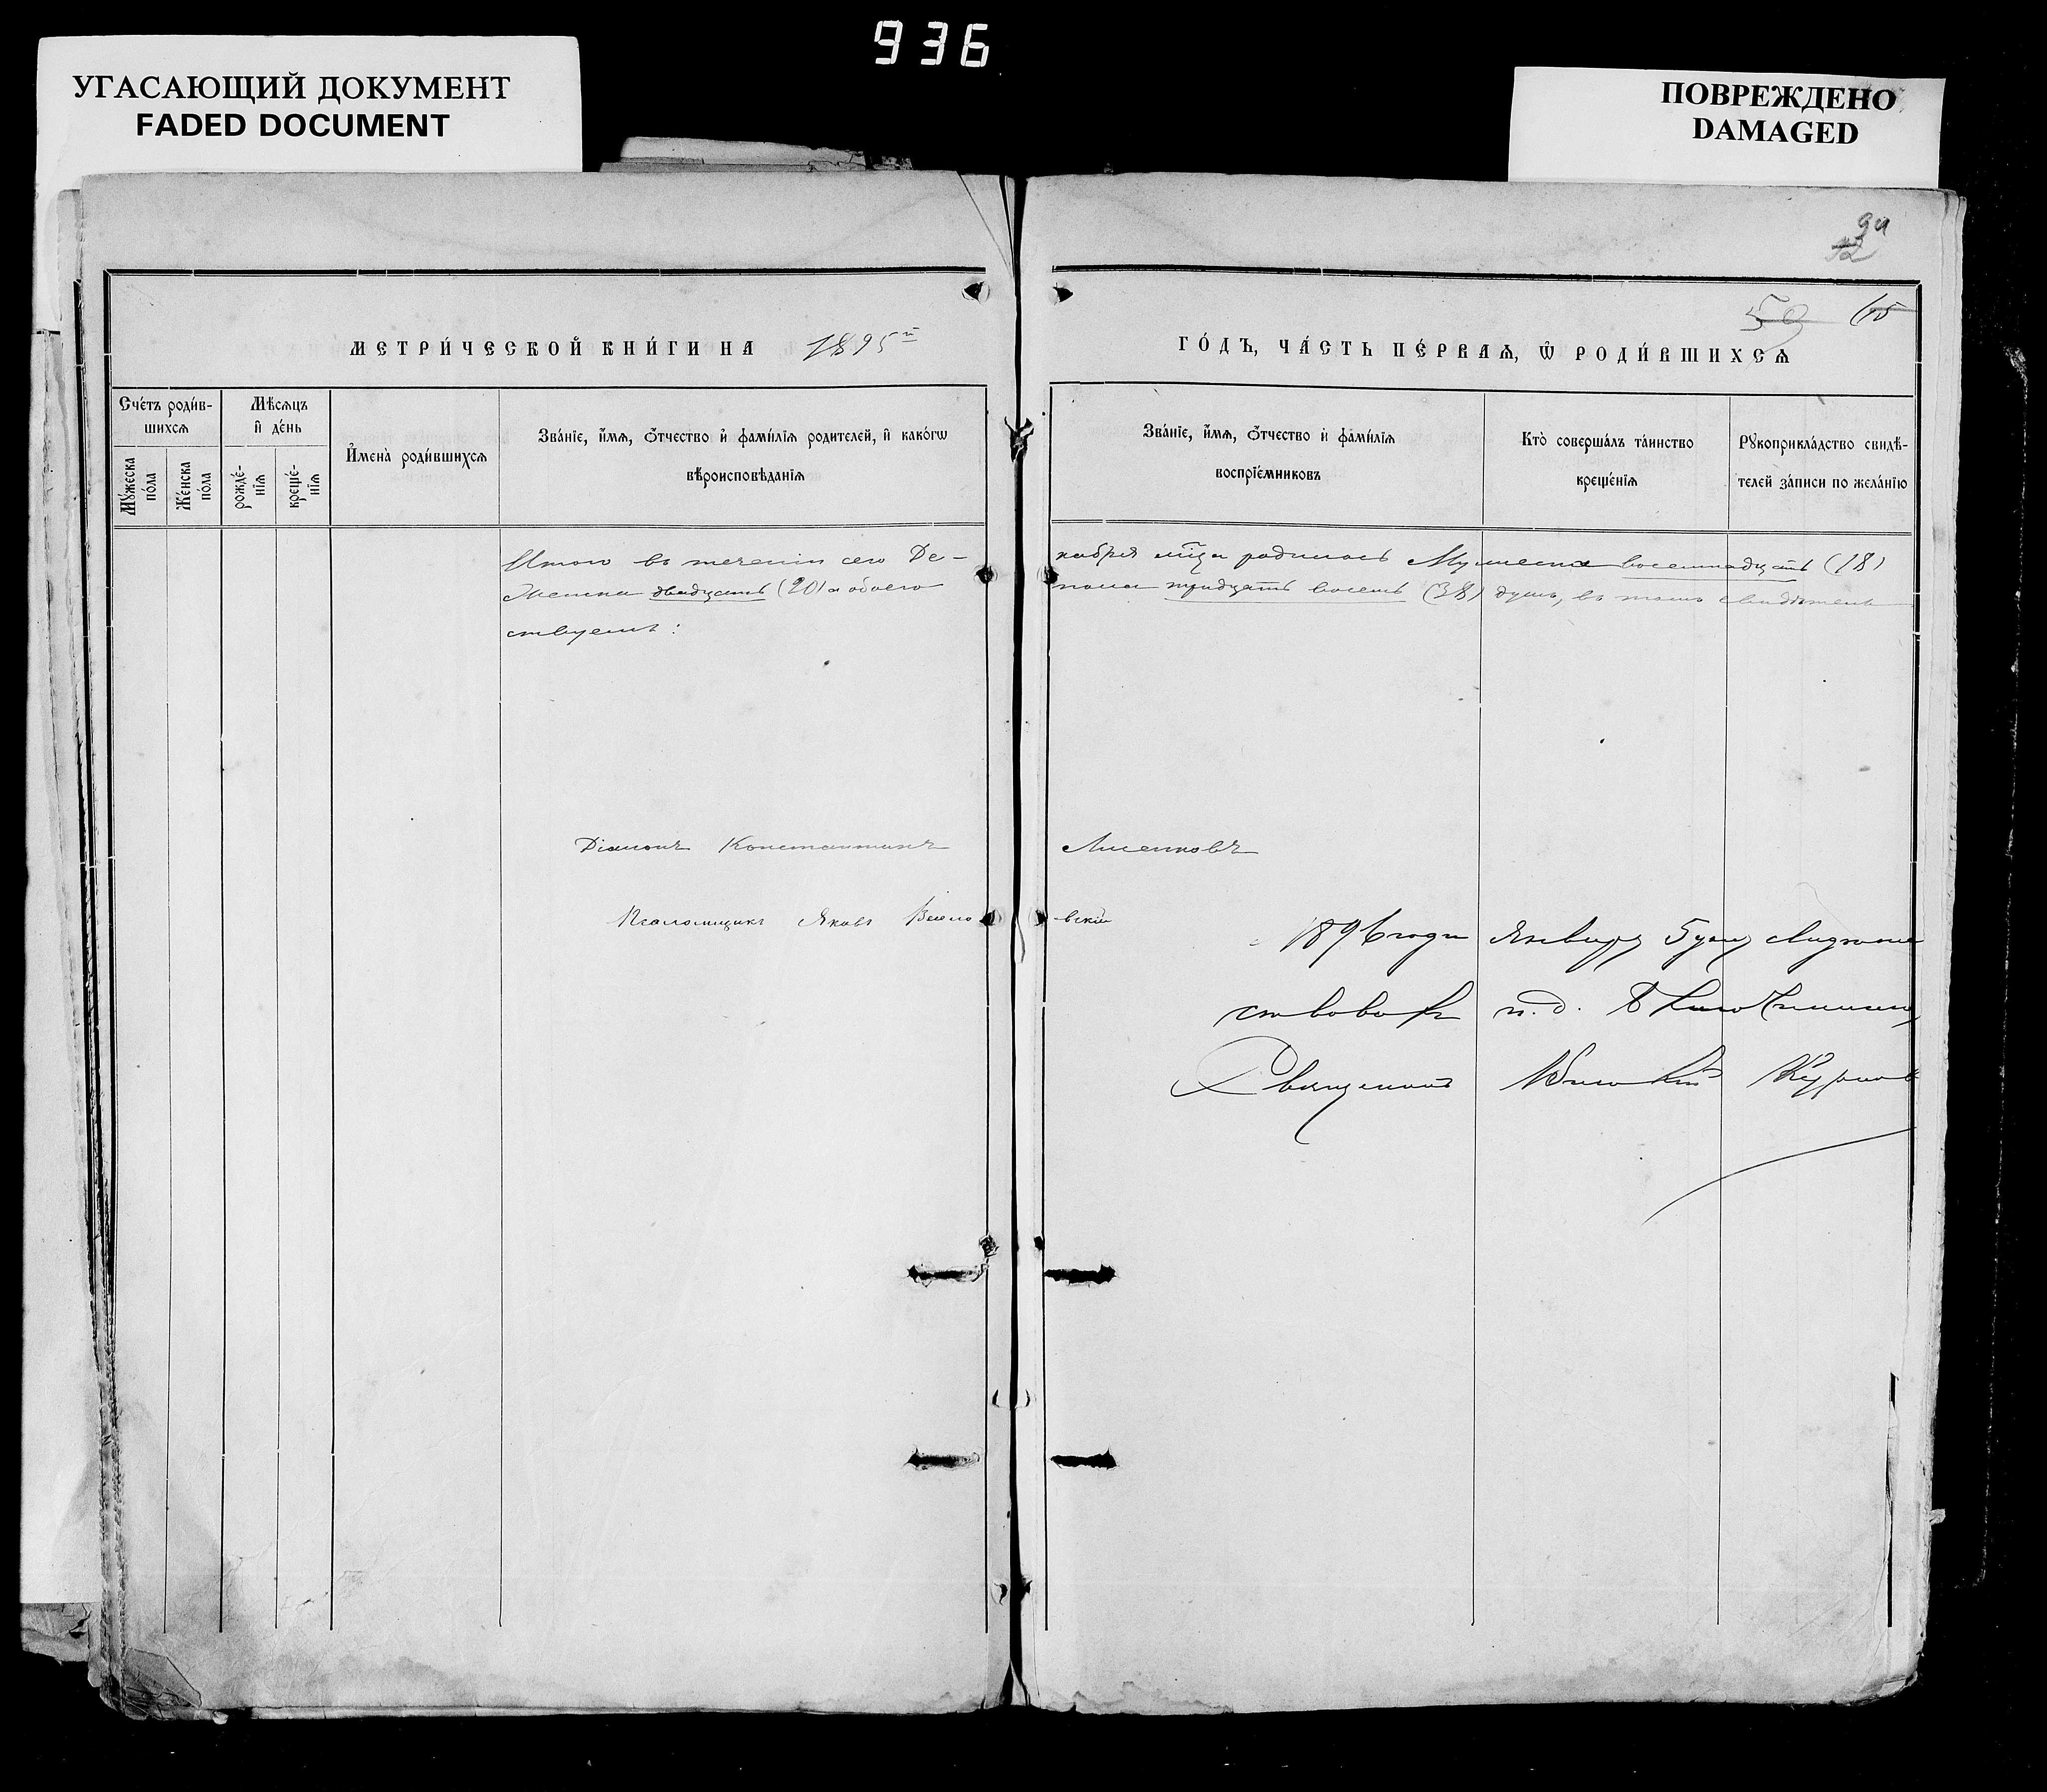 936
УГАСАЮЩИЙ ДОКУМЕНТ
FADED DOCUMENT
ПОВРЕЖДЕНО
DAMAGED
94
12
59
МЕТРИ́ЧЕСКОЙ КНИ́ГИ НА 1895й
ГО́ДЪ, ЧА́СТЬ ПЕ́РВАѦ, Ѽ РОДИ́ВШИХСѦ
Сче́тъ роди́в-
шихсѧ
Мѣ́сѧцъ
и҆ де́нь
Му́жеска
по́ла
Же́нска
по́ла
рожде́-
нїѧ
креще́-
нїѧ
И҆мена̀ роди́вшихсѧ
Зва́нїе, и҆́мѧ, ѻ҆́тчество и҆ фамѝлїѧ родителей, и҆ како́гѡ
вѣроисповѣ́данїѧ
Зва́нїе, и҆́мѧ, ѻ҆́тчество и҆ фамѝлїѧ
воспрїе́мниковъ
Кто̀ соверша́лъ та́инство
креще́нїѧ
Рꙋкоприкла́дство свидѣ́-
телей за́писи по жела́нїю
Итого въ теченіи сего Де-
кабря мѣца родилось Мужеска восемнадцать (18)
Женска двадцать (20) а обоего
пола тридцать восемь (38) душъ, въ томъ свидѣтель
ствуемъ:
Діаконъ Константинъ
Лисенковъ
Псаломщикъ Яковъ
вскій
1896 года Января 5 дня
и. д.
Священникъ